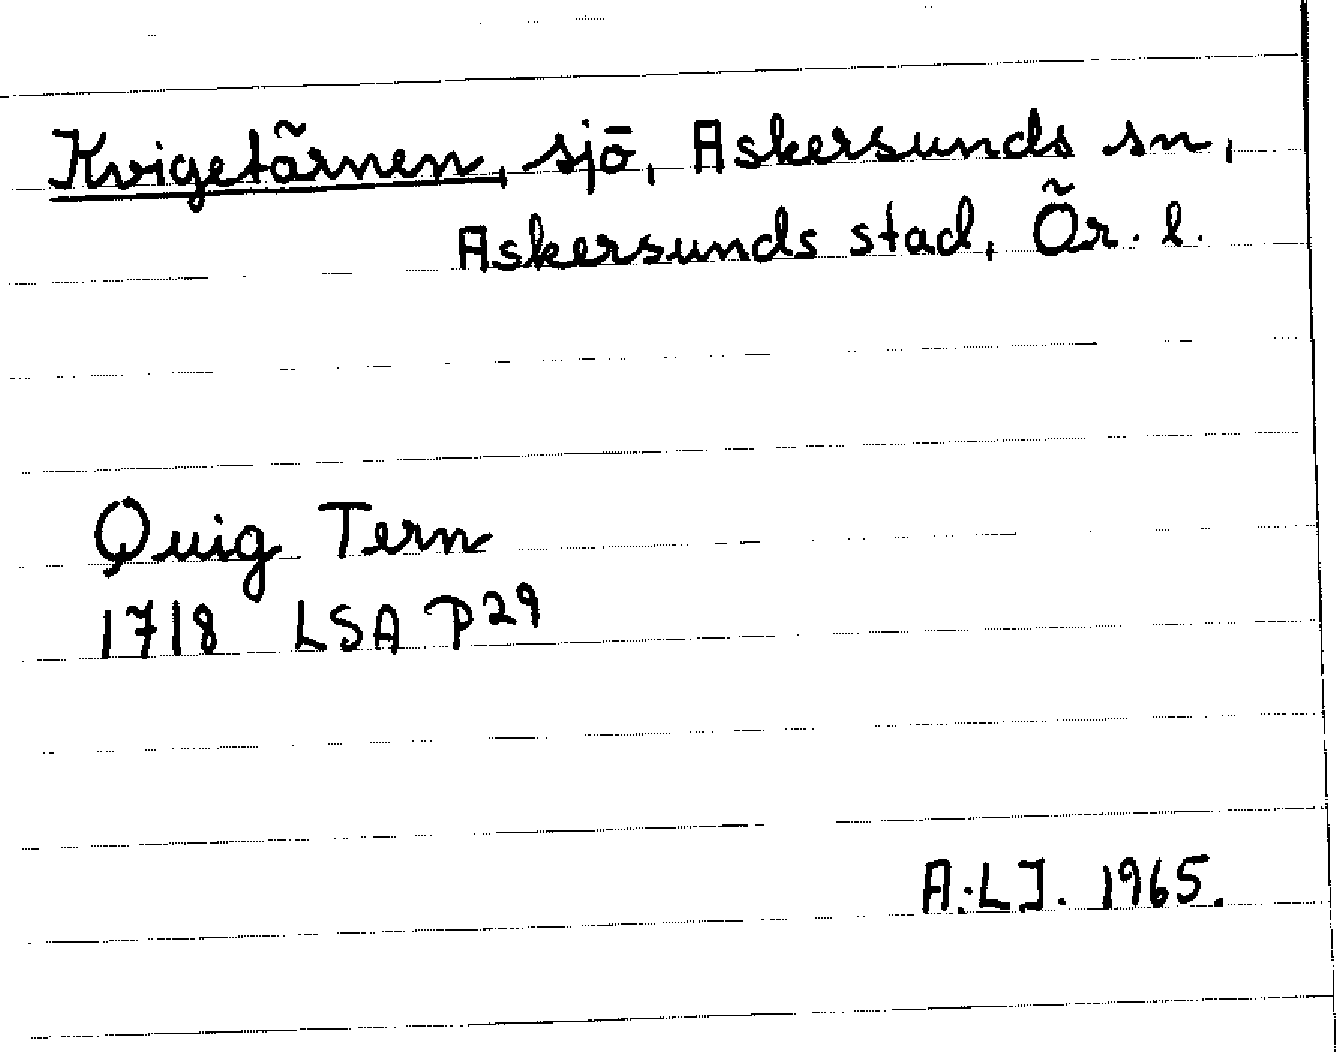 Kvigetärnen, sjö, Askersunds sn,
Askersunds stad, Ör. l.
Quig Tern
1718 LSA P29
A:LJ. 1965.